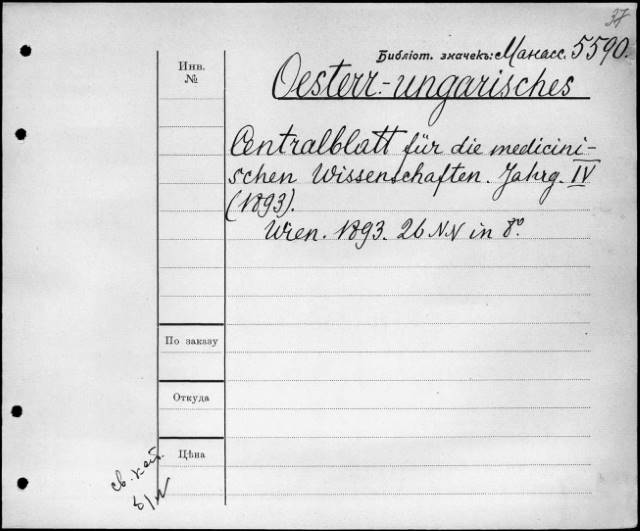 37
Библіот. значекъ: Манасс. 5590.
Инв.
№
Oesterr.-ungarisches
Centralblatt für die medicini-
schen Wissenschaften. Jahrg. IV
(1893).
Wien. 1893. 26 NN in 8º.
По заказу
Откуда
Цѣна
св. кат.